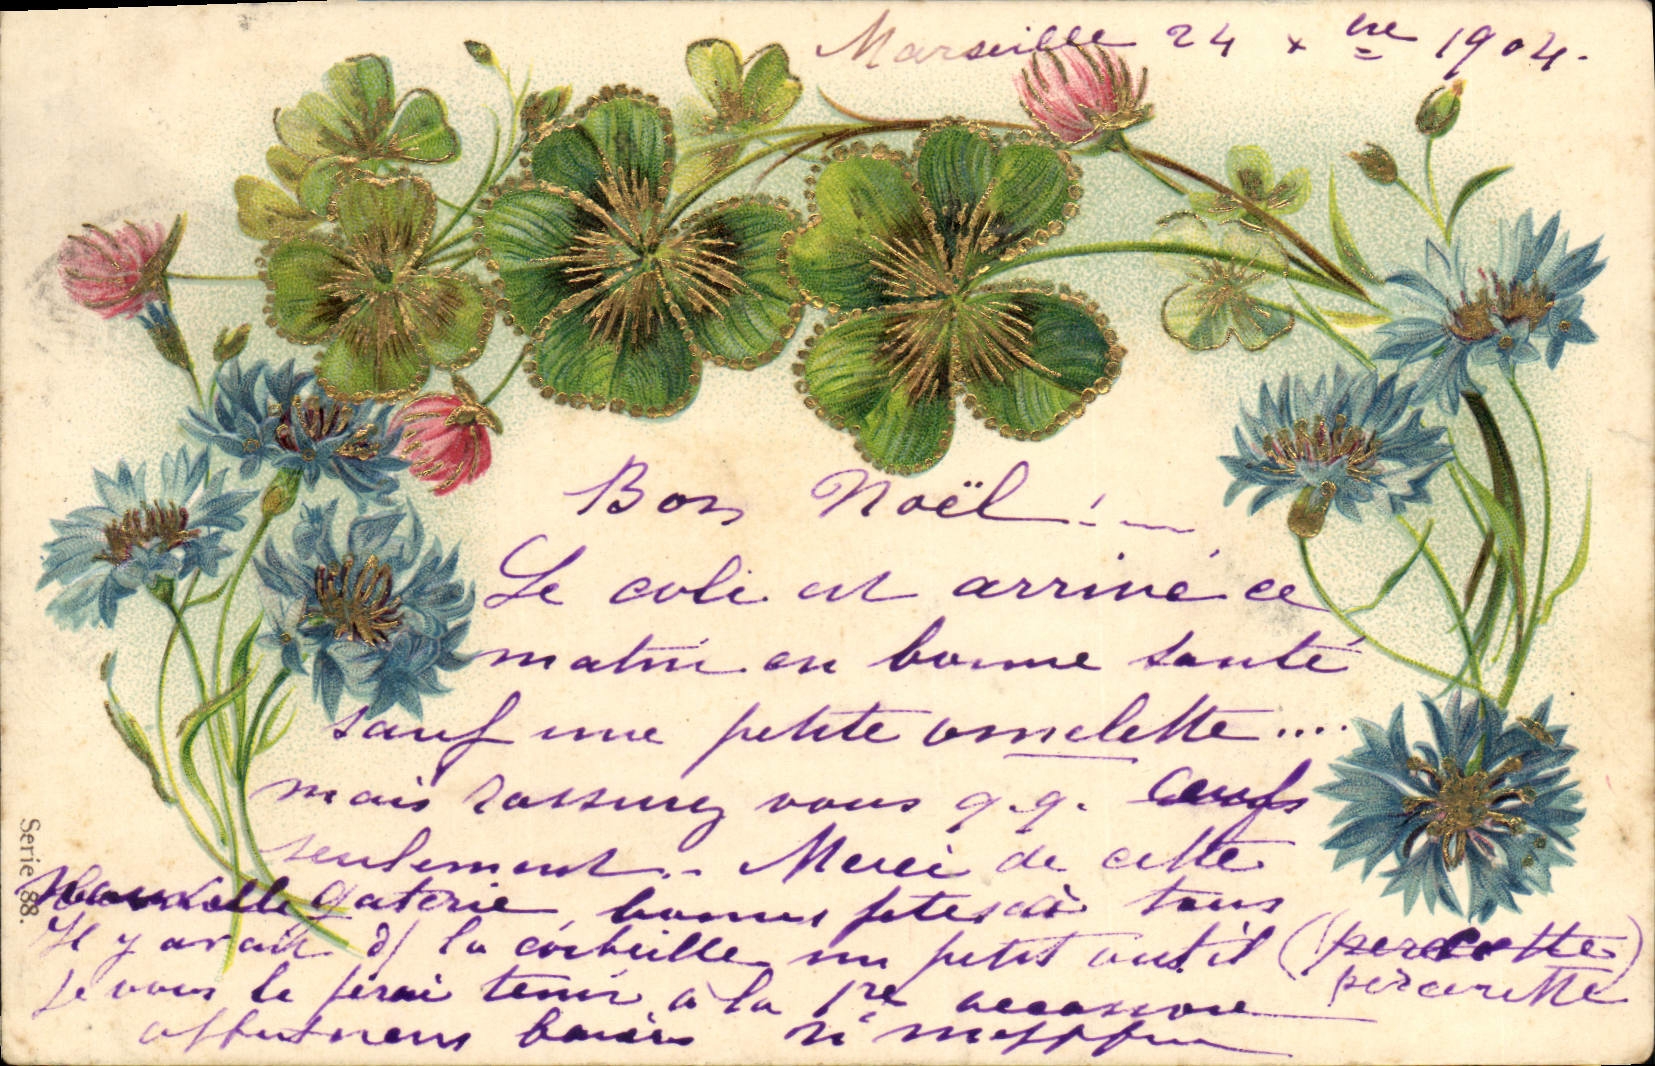 Marseille 24 xbre 1904.
Bon Noël! —
Le coli est arrivé ce
matin en bonne santé
sauf une petite omelette....
mais rassurez vous q.q. oeufs
seulement. - Merci de cette
nouvelle gaterie, bonnes fêtes à tous
Il y avait ds la corbeille un petit outil (
je vous le ferai tenir à la 1re occasion
affectueux baisers
Serie 88.